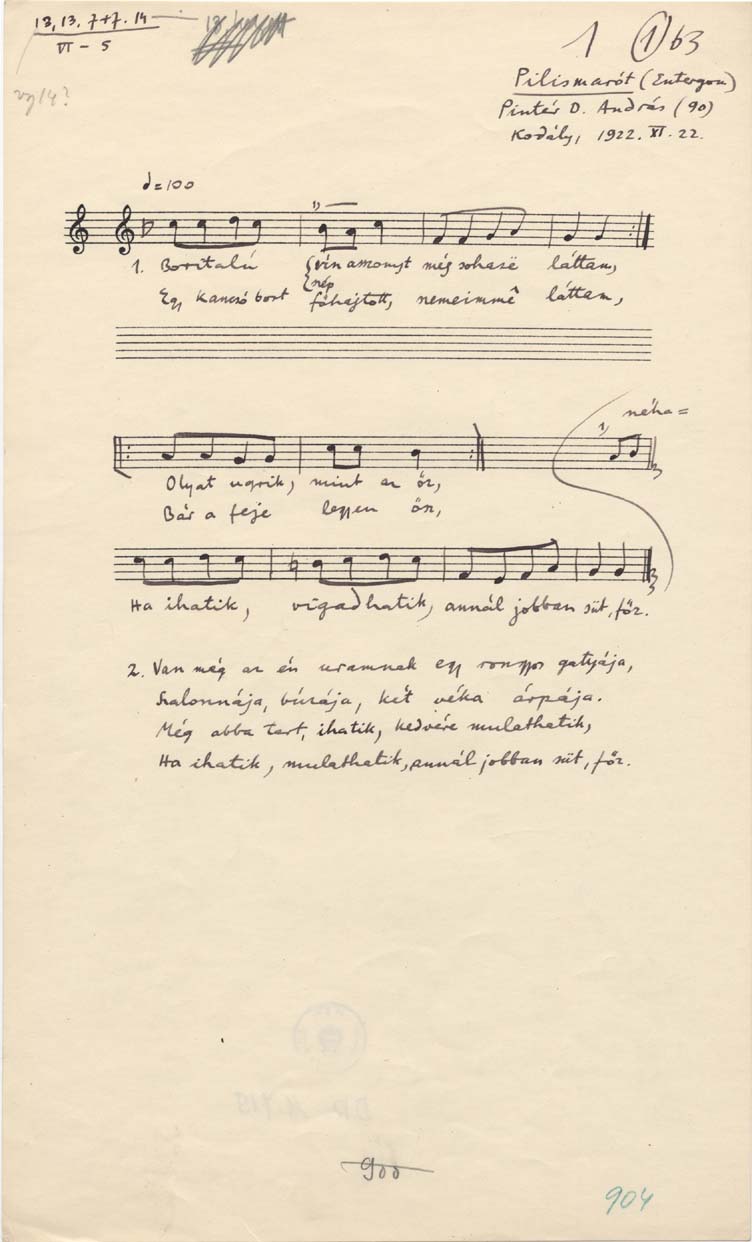 13, 13, 7+7. 14
VI - 5
1 1 63
Pilismarót (Esztergom)
Pintér D. András (90)
Kodály, 1922. XI. 22.
=100
1)
1. Boritalú { vén asszonyt még sohasë láttam,
{ nép
Egy kancsó bort főhajtott, nemeimmê láttam,
néha =
1)
Olyat ugrik, mint az őz,
Bár a feje legyen ősz,
Ha ihatik, vigadhatik, annál jobban süt, főz.
2. Van még az én uramnak egy rongyos gatyája,
Szalonnája, búzája, két véka árpája.
Még abba tart, ihatik, kedvére mulathatik,
Ha ihatik, mulathatik, annál jobban süt, főz.
900
904